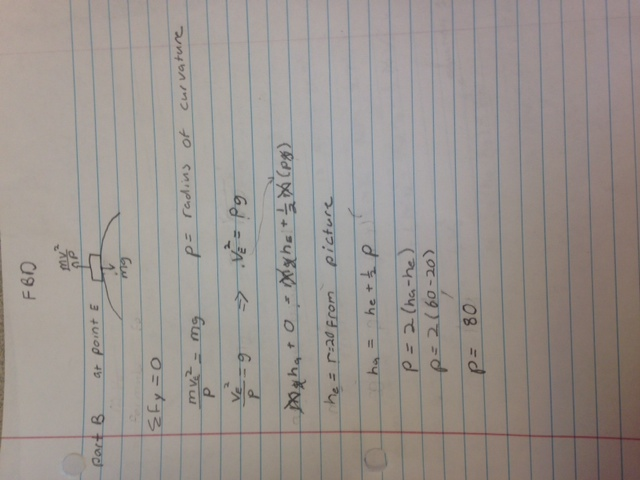 FBD
Part B at point E
mv²/p
mg
ΣFy = 0
mv_E²/p = mg p = radius of curvature
v_E²/p = g ⇒ v_E² = pg
mgha + 0 = mghE + ½ m(pg)
he = r = 20 from picture
ha = he + ½ p
p = 2(ha-he)
p = 2(60-20)
p = 80